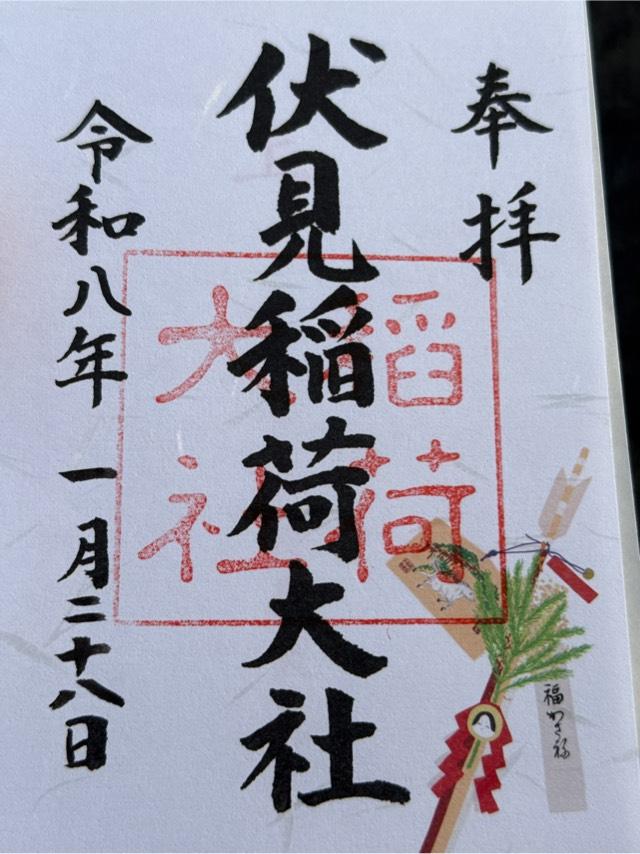 奉拝
伏見稲荷大社
令和八年 一月二十八日
稲荷
大社